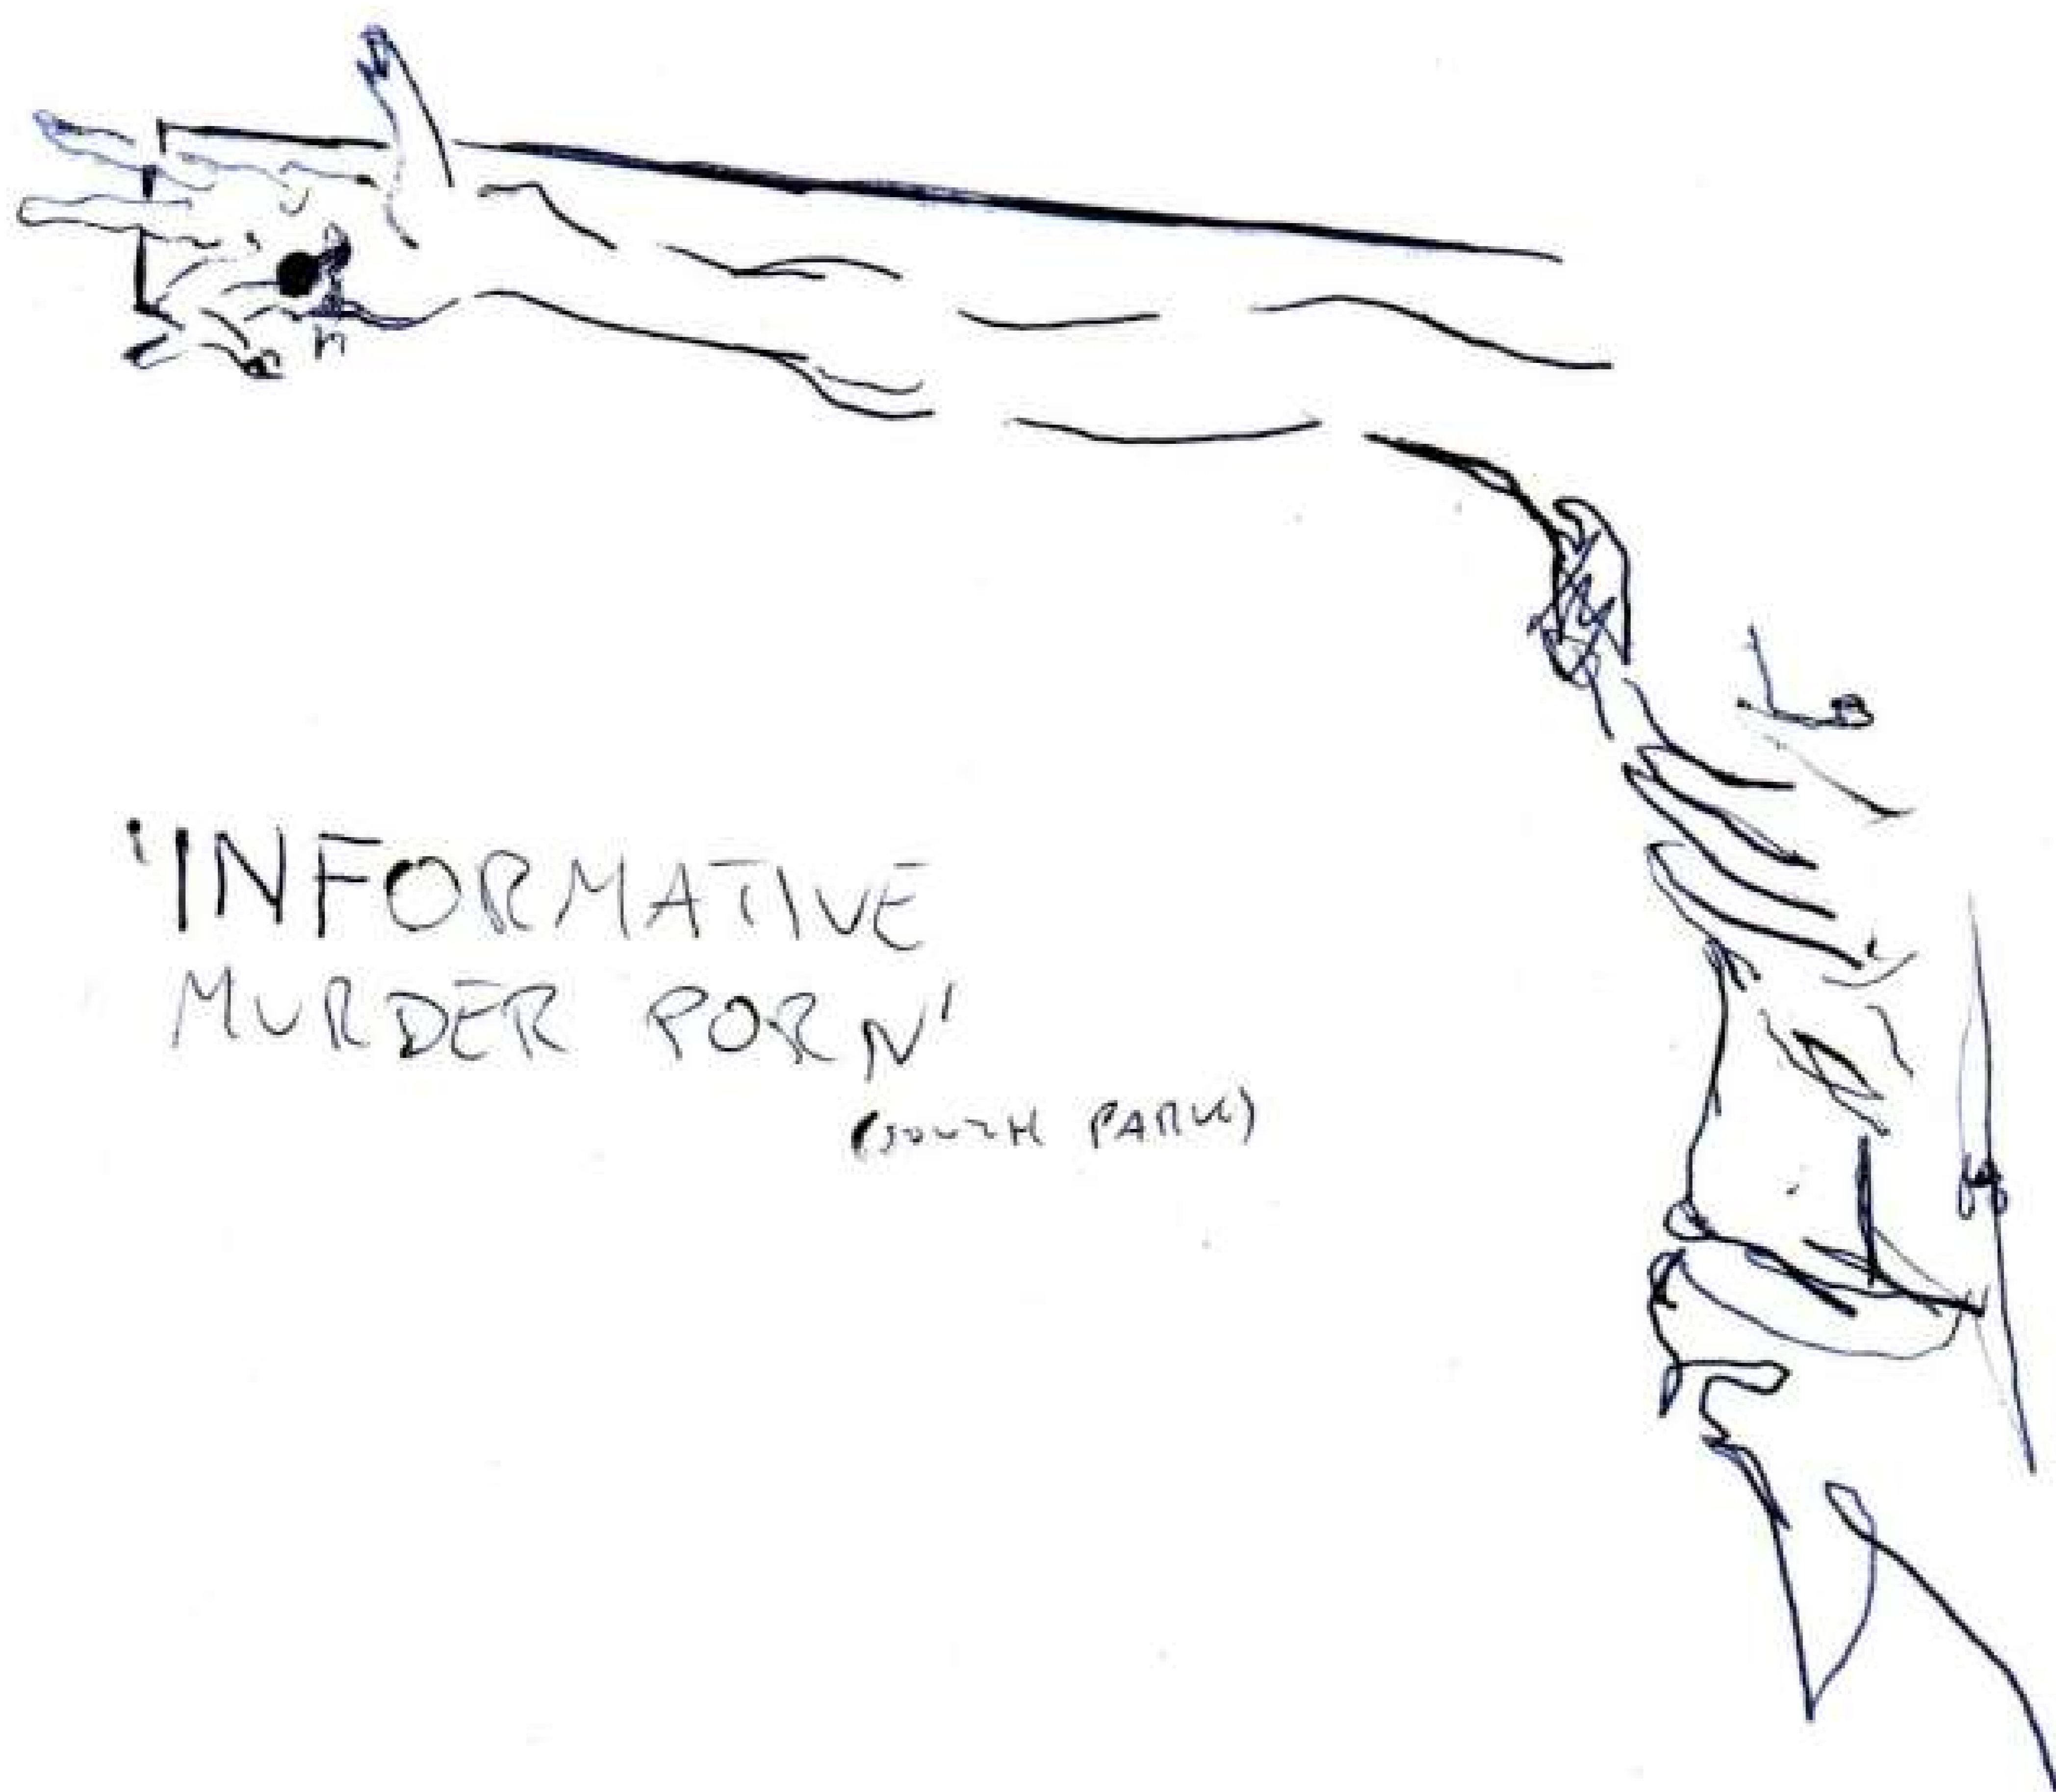 'INFORMATIVE
MURDER PORN'
(SOUTH PARK)